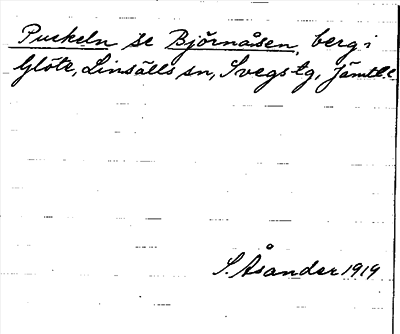 Puckeln se Björnåsen, berg i
Glöte, Linsälls sn, Svegs tg, Jämtl. l
S. Åsander 1919